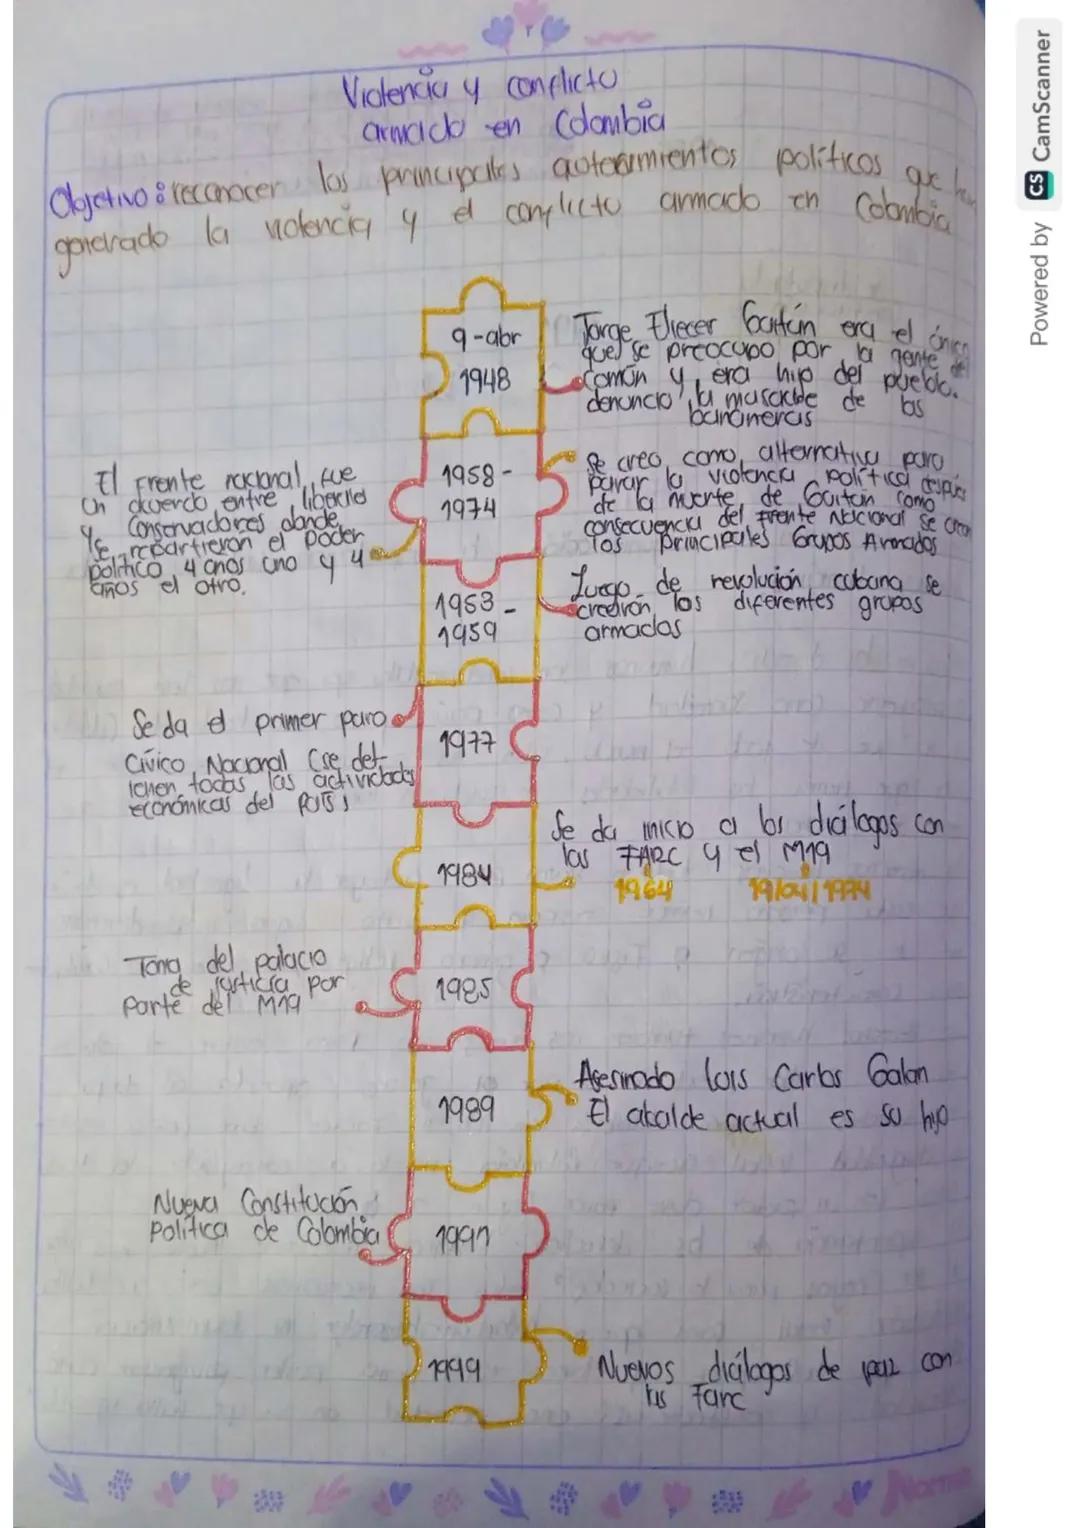 Violencia y conflicto
armado en Colombia
Objetivo: reconocer los principales acotecimientos políticos que han
generado la violencia y el conflicto armado en Colombia
9-abr
1948
Jorge Eliecer Gaitán era el única
que se preocupo por la gente del
común y era hijo del pueblo.
denuncio la masacre de las
bananeras
1958-
1974
El Frente nacional, fue
Un acuerdo entre liberales
y Conservadores donde
se repartieron el poder
político 4 años uno y 4
años el otro.
Se creo como alternativa para
parar la violencia política después
de la muerte de Gaitán como
consecuencia del Frente Nacional se crean
los principales Grupos Armados
1953-
1959
Luego de revolución cubana se
crearon los diferentes grupos
armados
1977
Se da el primer paro
Civico Nacional (se det-
ienen todas las actividades
económicas del País)
1984
Se da inicio a los diálogos con
las FARC y el M19
1964 19/04/1974
1985
Toma del palacio
de justicia por
Parte del M19
1989
Asesinado Luis Carlos Galan
El alcalde actual es su hijo
1991
Nueva Constitución
Política de Colombia
1999
Nuevos diálogos de paz con
las Farc
Norma
Powered by CS CamScanner